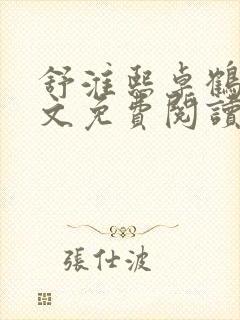 舒淮熙卓鶴
文免費閱讀
張仕波